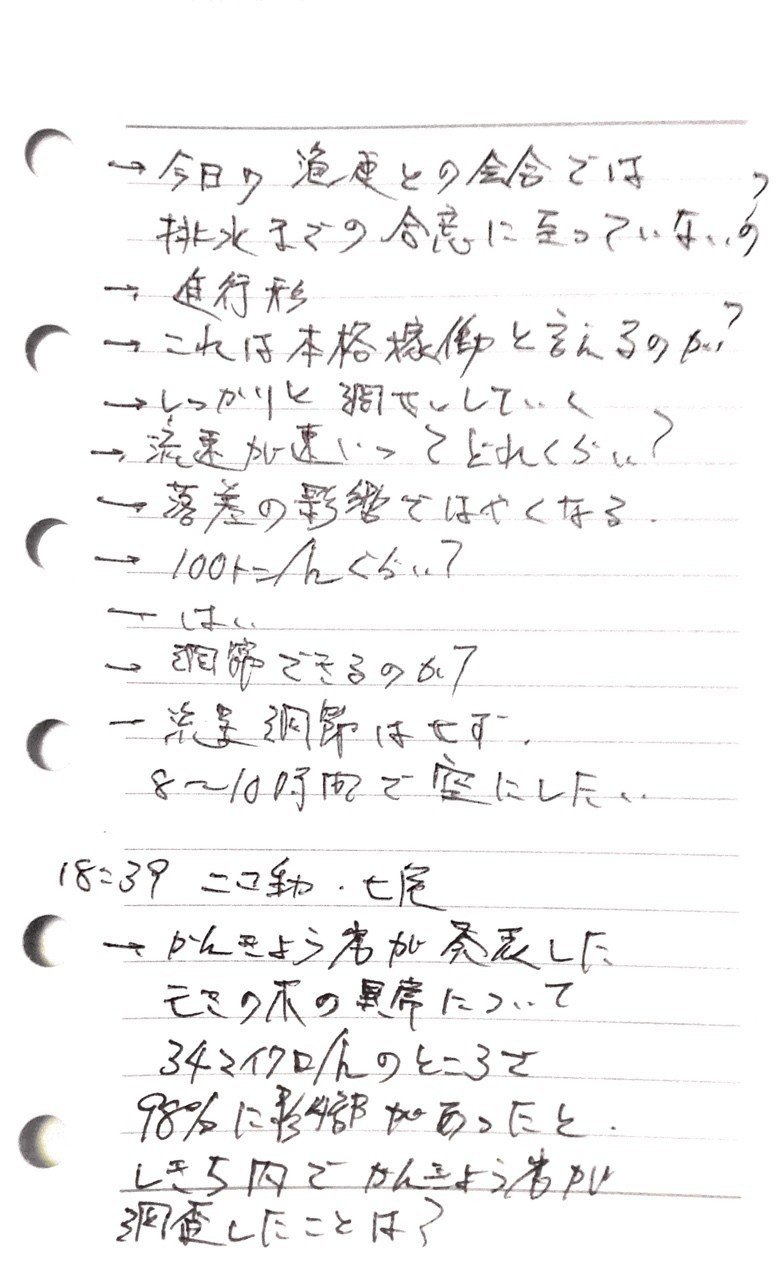 →今日の漁連との会合では
排水までの合意に至っていないの?
→進行形
→これは本格稼働と言えるのか?
→しっかりと調せいしていく
→流速が速いってどれくらい?
→落差の影響ではやくなる.
→100トン/hくらい?
→はい
→調節できるのか?
→流量調節はせず.
8〜10時間で空にしたい
18:39 ニコ動・七尾
→かんきょう省が発表した
モミの木の異常について
34マイクロ/hのところで
98%に影響があったと.
しきち内でかんきょう省が
調査したことは?